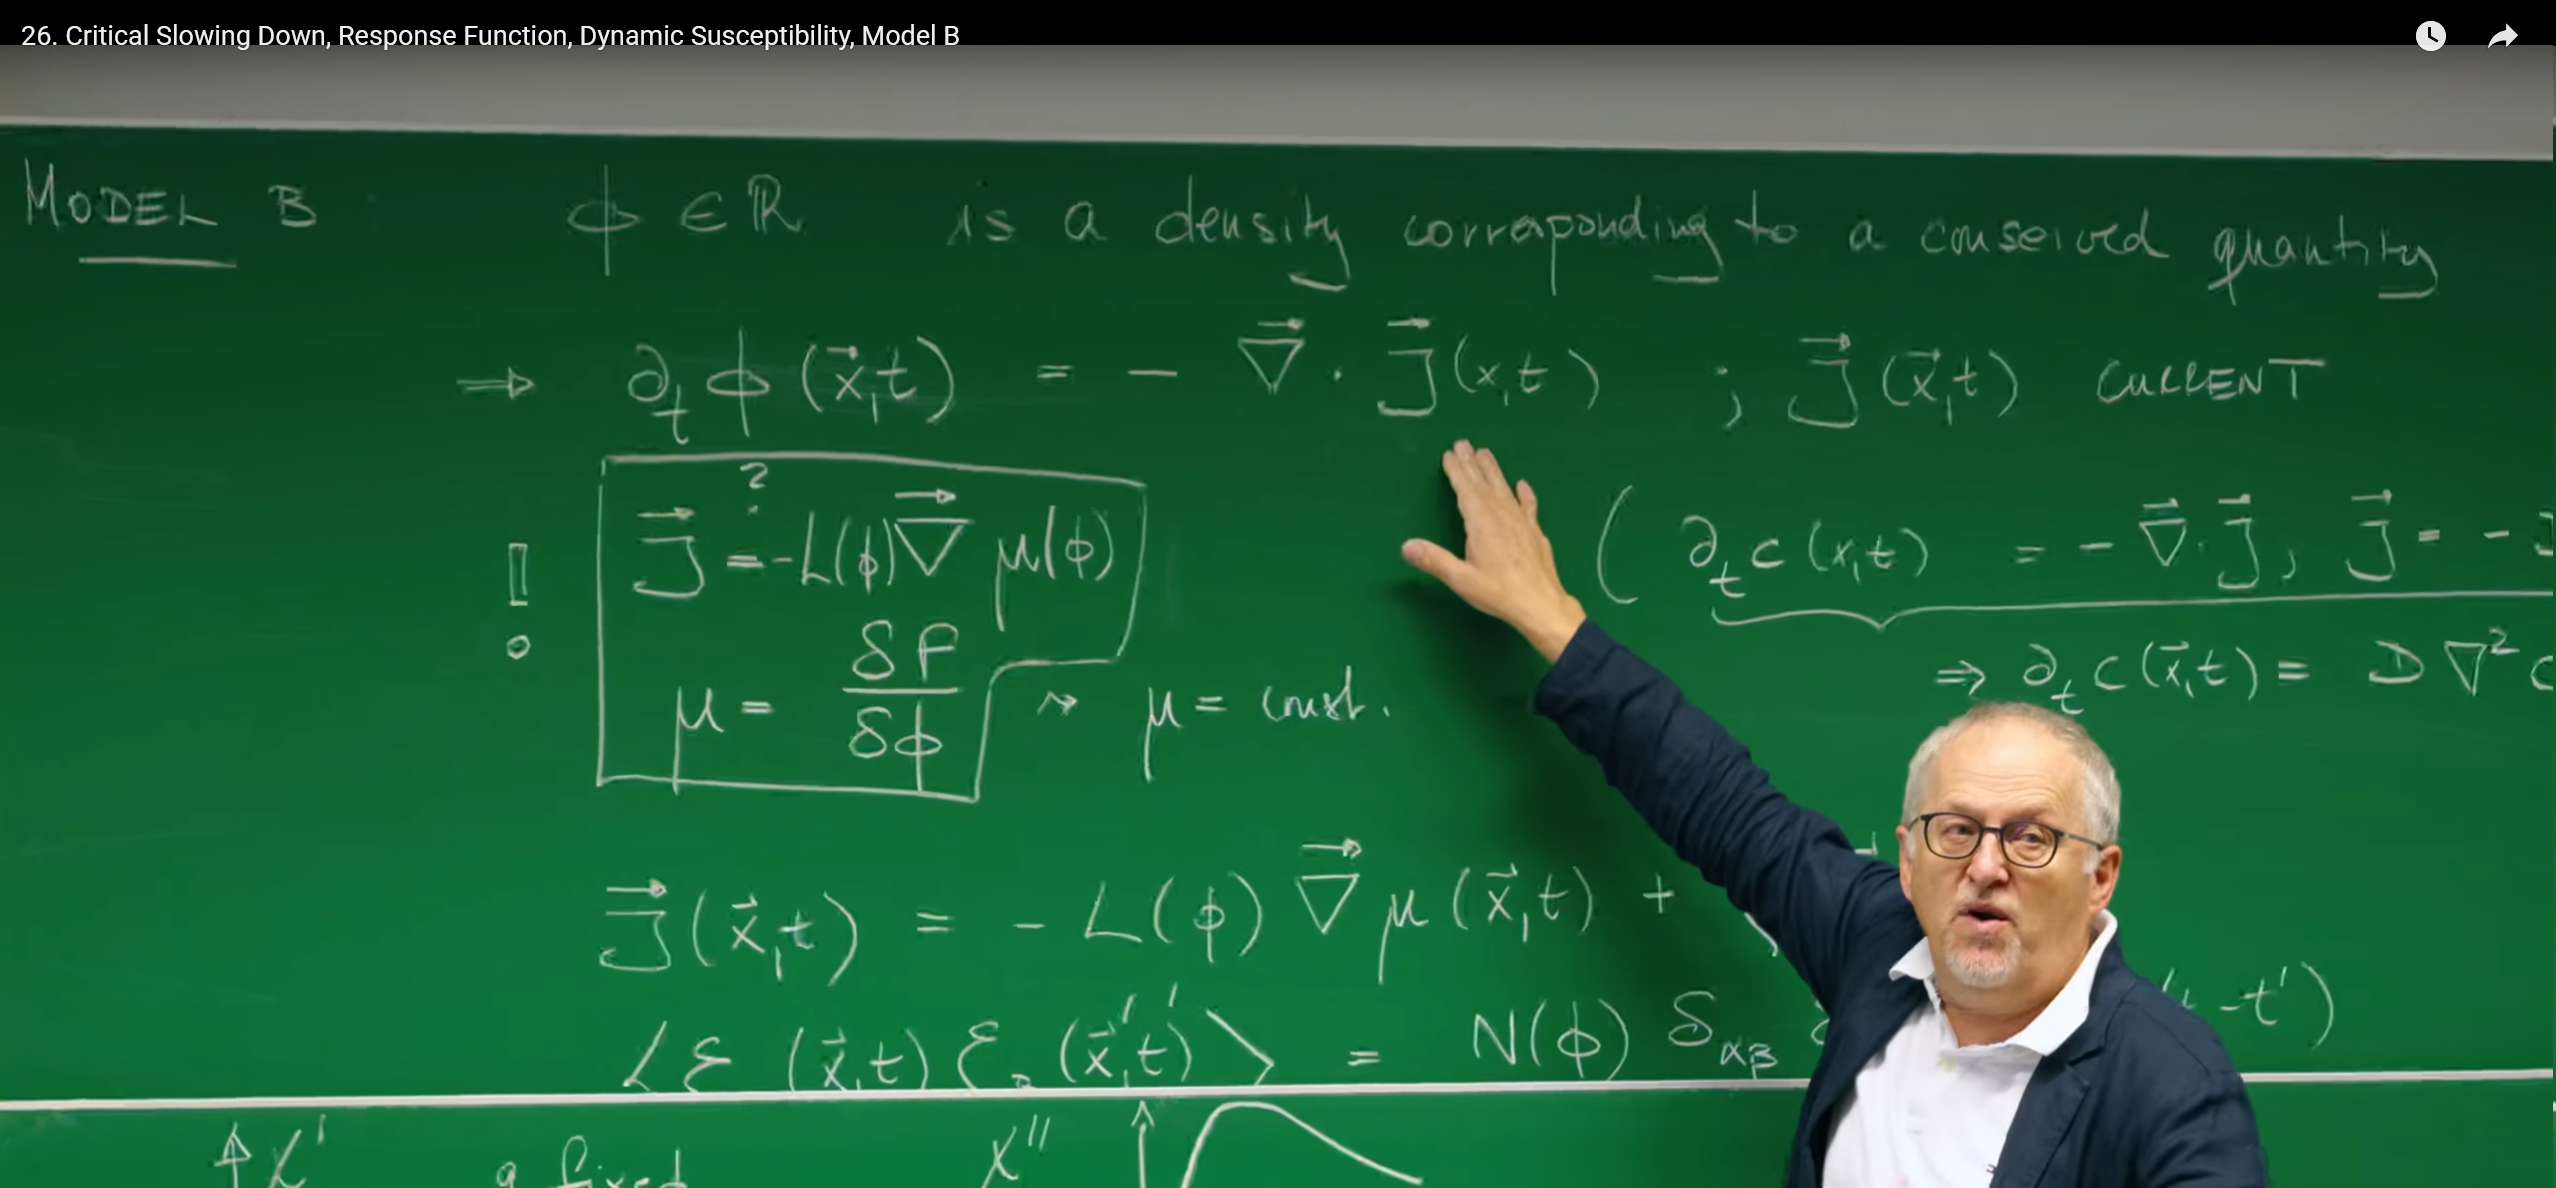 26. Critical Slowing Down, Response Function, Dynamic Susceptibility, Model B
MODEL B ϕ ∈ ℝ is a density corresponding to a conserved quantity
⇒ ∂_t ϕ(x⃗,t) = − ∇⃗ · J⃗(x,t) ; J⃗(x⃗,t) CURRENT
! J⃗ ?= -L(ϕ)∇⃗ μ(ϕ)
( ∂_t c(x,t) = − ∇⃗·J⃗, J⃗ = −
μ = δF/δϕ ⇝ μ = const.
⇒ ∂_t c(x⃗,t) = D ∇²
J⃗(x⃗,t) = − L(ϕ) ∇⃗ μ(x⃗,t) +
⟨ξ (x⃗,t) ξ (x⃗',t')⟩ = N(ϕ) δ_αβ -t')
↑ χ' q fixed χ''